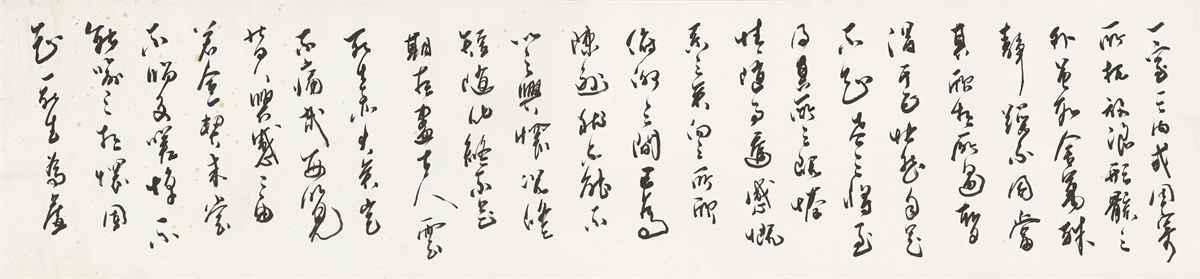 一室之内或因寄
所託放浪形骸之
外雖取舍萬殊
靜躁不同當
其欣於所遇暫
得於己快然自足
不知老之將至
及其所之既惓
情隨事遷感慨
係之矣向之所欣
俛仰之間已為
陳跡猶不能不
以之興懷況脩
短隨化終
期於盡古人云
死生亦大矣豈
不痛哉每覽
昔人興感之由
若合一契未嘗
不臨文嗟悼不
能喻之於懷固
知一死生為虛